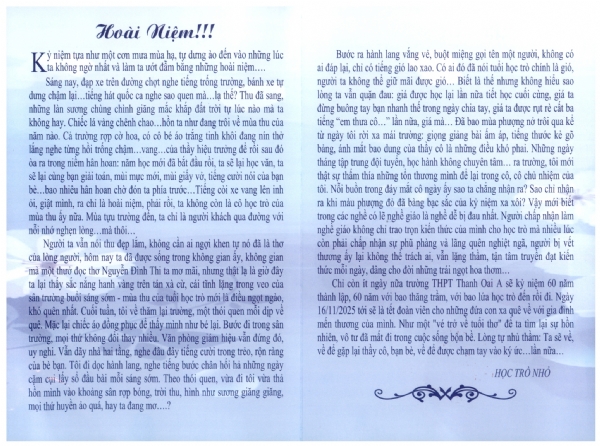 Hoài Niệm!!!
Kỷ niệm tựa như một cơn mưa mùa hạ, tự dưng ào đến vào những lúc
ta không ngờ nhất và làm ta ướt đầm bằng những hoài niệm….
Sáng nay, đạp xe trên đường chợt nghe tiếng trống trường, bánh xe tự
dưng chậm lại…tiếng hát quốc ca nghe sao quen mà…lạ thế? Thu đã sang,
những làn sương chùng chình giăng mắc khắp đất trời tự lúc nào mà ta
không hay. Chiếc lá vàng chênh chao…hồn ta như đang trôi về mùa thu của
năm nào. Cả trường rợp cờ hoa, có cô bé áo trắng tinh khôi đang nín thở
lắng nghe từng hồi trống chậm…vang…của thầy hiệu trưởng để rồi sau đó
òa ra trong niềm hân hoan: năm học mới đã bắt đầu rồi, ta sẽ lại học văn, ta
sẽ lại cùng bạn giải toán, mùi mực mới, mùi giấy vở, tiếng cười nói của bạn
bè…bao nhiêu hân hoan chờ đón ta phía trước…Tiếng còi xe vang lên inh
ỏi, giật mình, ra chỉ là hoài niệm, phải rồi, ta không còn là cô học trò của
mùa thu ấy nữa. Mùa tựu trường đến, ta chỉ là người khách qua đường với
nỗi nhớ nghẹn lòng…mà thôi…
Người ta vẫn nói thu đẹp lắm, không cần ai ngợi khen tự nó đã là thơ
của lòng người, hôm nay ta đã được sống trong không gian ấy, không gian
mà một thuở đọc thơ Nguyễn Đình Thi ta mơ mãi, nhưng thật lạ là giờ đây
ta lại thấy sắc nắng hanh vàng trên tán xà cừ, cái tĩnh lặng trong veo của
sân trường buổi sáng sớm - mùa thu của tuổi học trò mới là điều ngọt ngào,
khó quên nhất. Cuối tuần, tôi về thăm lại trường, một thói quen mỗi dịp về
quê. Mặc lại chiếc áo đồng phục để thấy mình như bé lại. Bước đi trong sân
trường, mọi thứ không đổi thay nhiều. Văn phòng giám hiệu vẫn đứng đó,
uy nghi. Vẫn dãy nhà hai tầng, nghe đâu đây tiếng cười trong trẻo, rộn ràng
của bè bạn. Tôi đi dọc hành lang, nghe tiếng bước chân hối hả những ngày
cậm cụi lấy sổ đầu bài mỗi sáng sớm. Theo thói quen, vừa đi tôi vừa thả
hồn mình vào khoảng sân rợp bóng, trời thu, hình như sương giăng giăng,
mọi thứ huyền ảo quá, hay ta đang mơ….?
Bước ra hành lang vắng vẻ, buột miệng gọi tên một người, không có
ai đáp lại, chỉ có tiếng gió lao xao. Có ai đó đã nói tuổi học trò chính là gió,
người ta không thể giữ mãi được gió… Biết là thế nhưng không hiểu sao
lòng ta vẫn quặn đau: giá được học lại lần nữa tiết học cuối cùng, giá ta
đừng buông tay bạn nhanh thế trong ngày chia tay, giá ta được rụt rè cất ba
tiếng “em thưa cô…” lần nữa, giá mà… Đã bao mùa phượng nở trôi qua kể
từ ngày tôi rời xa mái trường: giọng giảng bài ấm áp, tiếng thước kẻ gõ
bảng, ánh mắt bao dung của thầy cô là những điều khó phai. Những ngày
tháng tập trung đội tuyển, học hành không chuyên tâm… ra trường, tôi mới
thật sự thấm thía những tổn thương mình để lại trong cô, cô chủ nhiệm của
tôi. Nỗi buồn trong đáy mắt cô ngày ấy sao ta chẳng nhận ra? Sao chỉ nhận
ra khi màu phượng đỏ đã bàng bạc sắc của kỷ niệm xa xôi? Vậy mới biết
trong các nghề có lẽ nghề giáo là nghề dễ bị đau nhất. Người chấp nhận làm
nghề giáo không chỉ trao trọn kiến thức của mình cho học trò mà nhiều lúc
còn phải chấp nhận sự phũ phàng và lãng quên nghiệt ngã, người bị vết
thương ấy lại không thể trách ai, vẫn lặng thầm, tận tâm truyền đạt kiến
thức mỗi ngày, dâng cho đời những trái ngọt hoa thơm…
Chỉ còn ít ngày nữa trường THPT Thanh Oai A sẽ kỷ niệm 60 năm
thành lập, 60 năm với bao thăng trầm, với bao lứa học trò đến rồi đi. Ngày
16/11/2025 tới sẽ là tết đoàn viên cho những đứa con xa quê về với gia đình
mến thương của mình. Như một "vé trở về tuổi thơ" để ta tìm lại sự hồn
nhiên, vô tư đã mất đi trong cuộc sống bộn bề. Lòng tự nhủ thầm: Ta sẽ về,
về để gặp lại thầy cô, bạn bè, về để được chạm tay vào ký ức…lần nữa…
HỌC TRÒ NHỎ